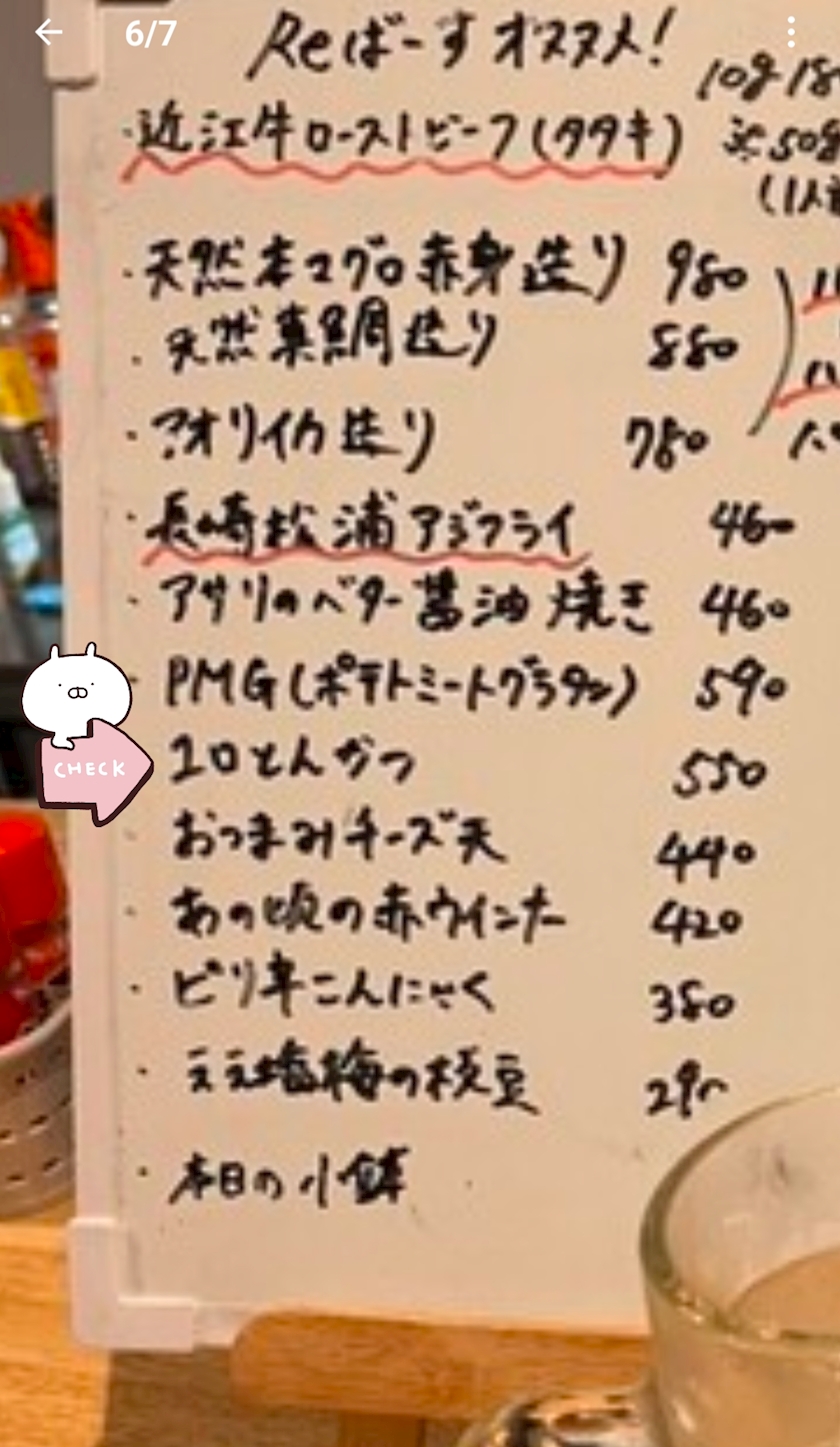 6/7
Reば-すオススメ!
10g 18
・近江牛ローストビーフ(タタキ) ※50g
(1人前
・天然本マグロ赤身造り 980
・天然真鯛造り 880
・アオリイカ造り 780
・長崎松浦アジフライ 460
・アサリのバター醤油焼き 460
・PMG(ポテトミートグラタン) 590
CHECK
一口とんかつ 550
・おつまみチーズ天 440
・あの頃の赤ウインナー 420
・ピリ辛こんにゃく 380
・ええ塩梅の枝豆 290
・本日の小鉢